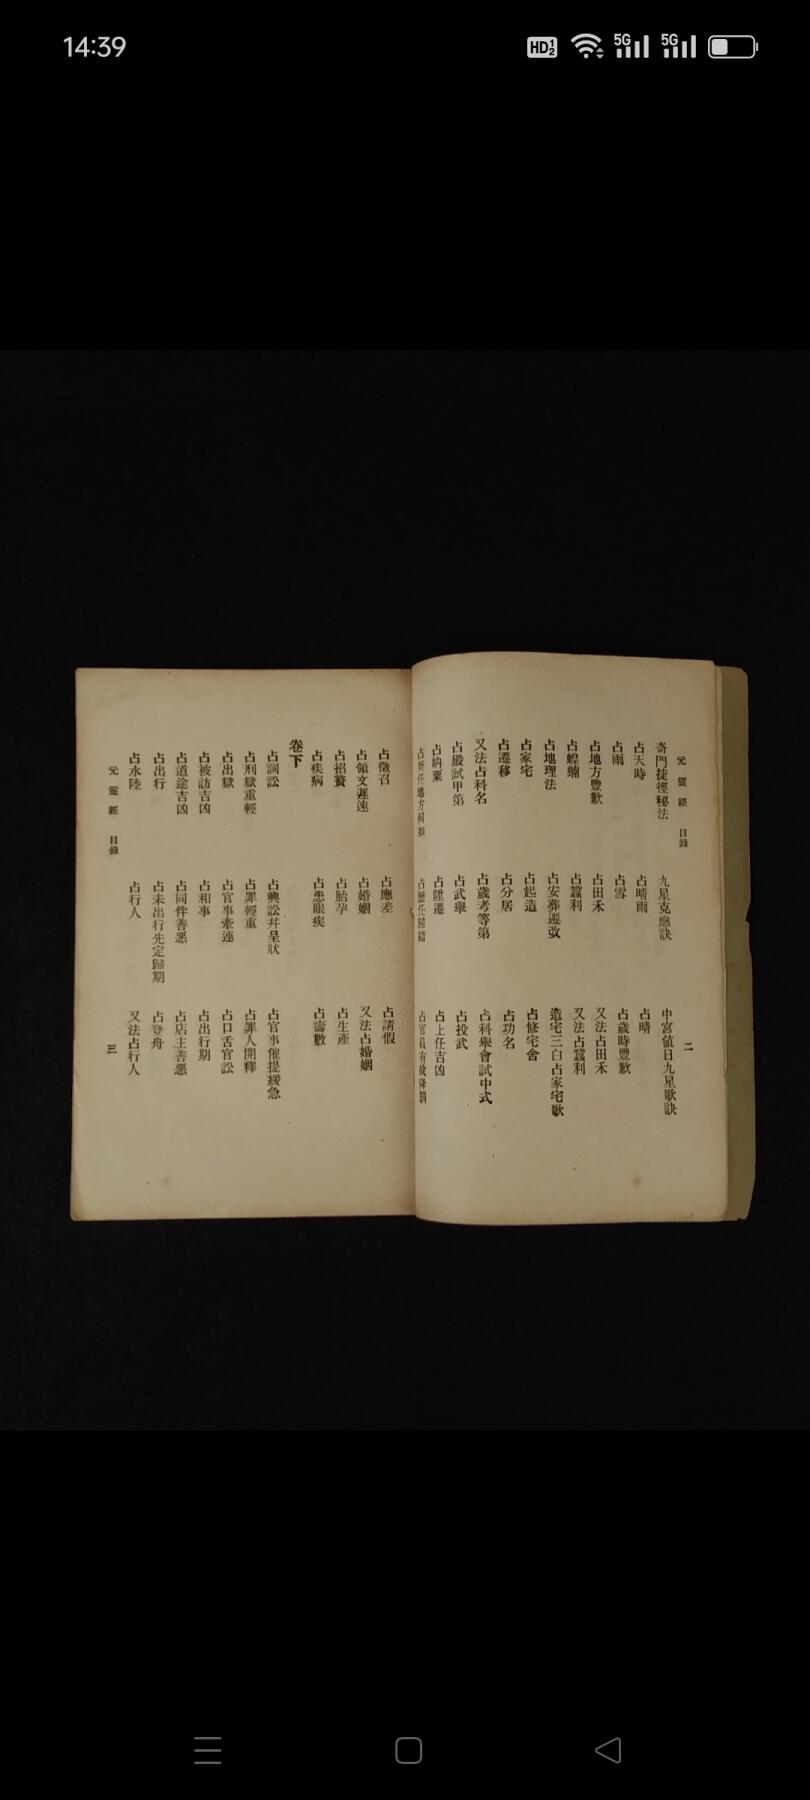 14:39
HD 1 2
5G
5G
元靈經 目錄
二
奇門捷徑秘法 九星克應訣 中宮值日九星歌訣
占天時 占晴雨 占晴
占雨 占雪 占歲時豐歉
占地方豐歉 占田禾 又法占田禾
占蝗蝻 占蠶利 又法占蠶利
占地理法 占安葬遷改 造宅三白占家宅歌
占家宅 占起造 占修宅舍
占遷移 占分居 占功名
又法占科名 占歲考等第 占科舉會試中式
占殿試甲第 占武舉 占投武
占納粟 占陞遷 占上任吉凶
占新任地方何如 占歷任歸結 占官員有故降調
占徵召 占應差 占請假
占領文遲速 占婚姻 又法占婚姻
占招贅 占胎孕 占生產
占疾病 占患眼疾 占壽數
卷下
占詞訟 占興訟并呈狀 占官事催提緩急
占刑獄重輕 占罪輕重 占罪人開釋
占出獄 占官事牽連 占口舌官訟
占被訪吉凶 占和事 占出行期
占道途吉凶 占同伴善惡 占店主善惡
占出行 占未出行先定歸期 占登舟
占水陸 占行人 又法占行人
元靈經 目錄
三